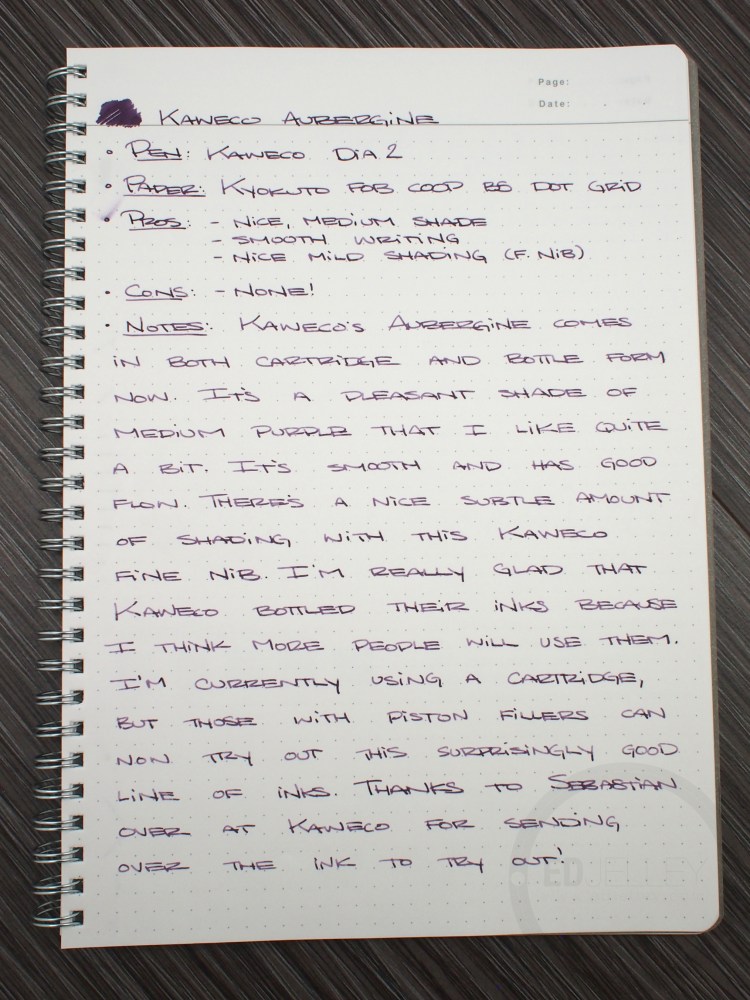 Page:
Date: . .
KAWECO AUBERGiNE
• PEN: KAWECO DiA 2
• PAPER: KYOKUTO FOB COOP B5 DOT GRiD
• PROS: - NiCE, MEDiUM SHADE
- SMOOTH WRiTiNG
- NiCE MiLD SHADiNG (F. NiB)
• CONS: - NONE!
• NOTES: KAWECO'S AUBERGiNE COMES
iN BOTH CARTRiDGE AND BOTTLE FORM
NOW. IT'S A PLEASANT SHADE OF
MEDiUM PURPLE THAT I LiKE QUiTE
A BiT. IT'S SMOOTH AND HAS GOOD
FLOW. THERE'S A NiCE SUBTLE AMOUNT
OF SHADiNG WiTH THiS KAWECO
FiNE NiB. I'M REALLY GLAD THAT
KAWECO BOTTLED THEiR iNKS BECAUSE
I THiNK MORE PEOPLE WiLL USE THEM.
I'M CURRENTLY USiNG A CARTRiDGE,
BUT THOSE WiTH PiSTON FiLLERS CAN
NOW TRY OUT THiS SURPRiSiNGLY GOOD
LiNE OF iNKS. THANKS TO SEBASTiAN
OVER AT KAWECO FOR SENDiNG
OVER THE iNK TO TRY OUT!
ED JELLEY